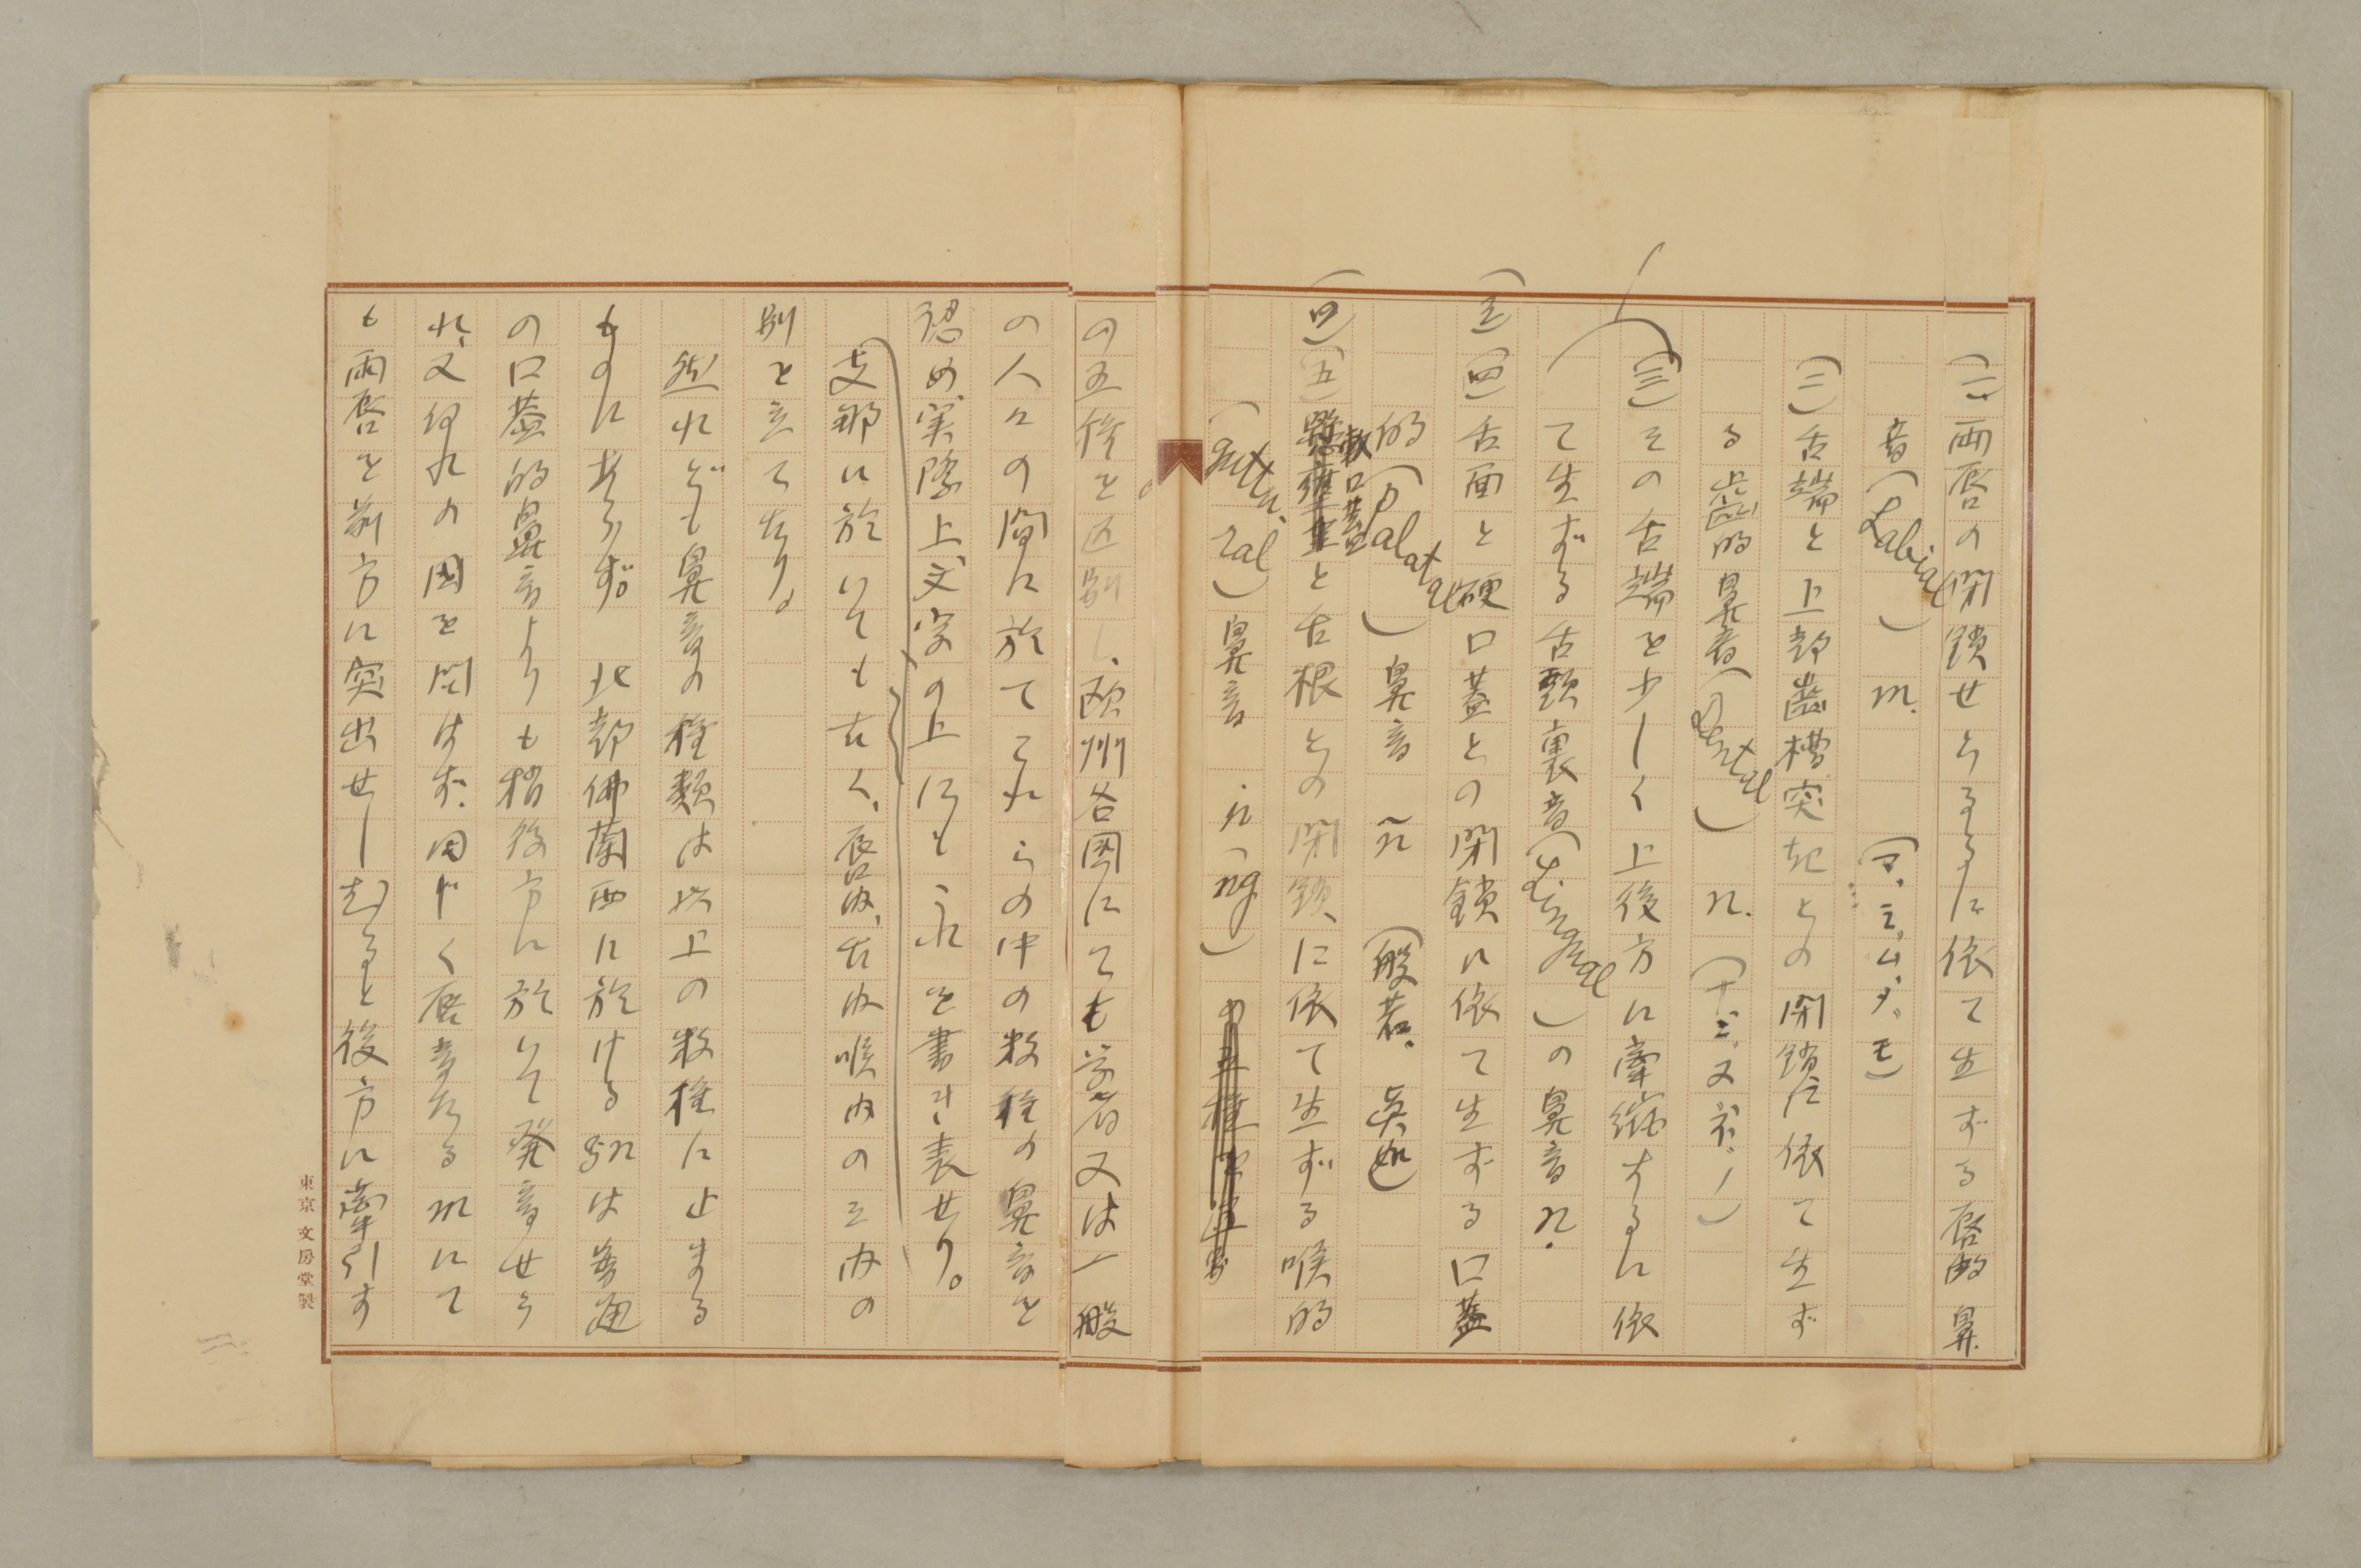 (一)両唇の閉鎖せらるるに依て生ずる唇的鼻
音(Labial) m. (マ、ミ、ム、メ、モ)
(二)舌端と上部歯槽突起との閉鎖に依て生ず
る歯的鼻音(Dental) n. (ナ、ニ、ヌ、ネ、ノ)
(三)その舌端を少しく上後方に牽縮するに依
て生ずる舌頭裏音(Lingual)の鼻音 n.
(三)(四)舌面と硬口蓋との閉鎖に依て生ずる口蓋
的(Palatal)鼻音 ñ (般若。
(四)(五)軟口蓋と舌根との閉鎖に依て生ずる喉的
(guttural)鼻音 ṅ (ng)
の五種を区別し、欧州各国にても学者又は一般
の人々の間に於てこれらの中の数種の鼻音を
認め、実際上、文字の上にもこれを書き表せり。
支那に於いても古く、唇内、舌内喉内の三内の
別を立て右り。
然れども鼻音の種類は以上の数種に止まる
ものにあらず。北部佛蘭西に於ける gn は普通
の口蓋的鼻音よりも稍後方に於いて発音せら
れ、又何れの国を問はず、同じく唇音たる m にて
も両唇を前方に突出せし むると後方に牽引す
東京 文房堂製